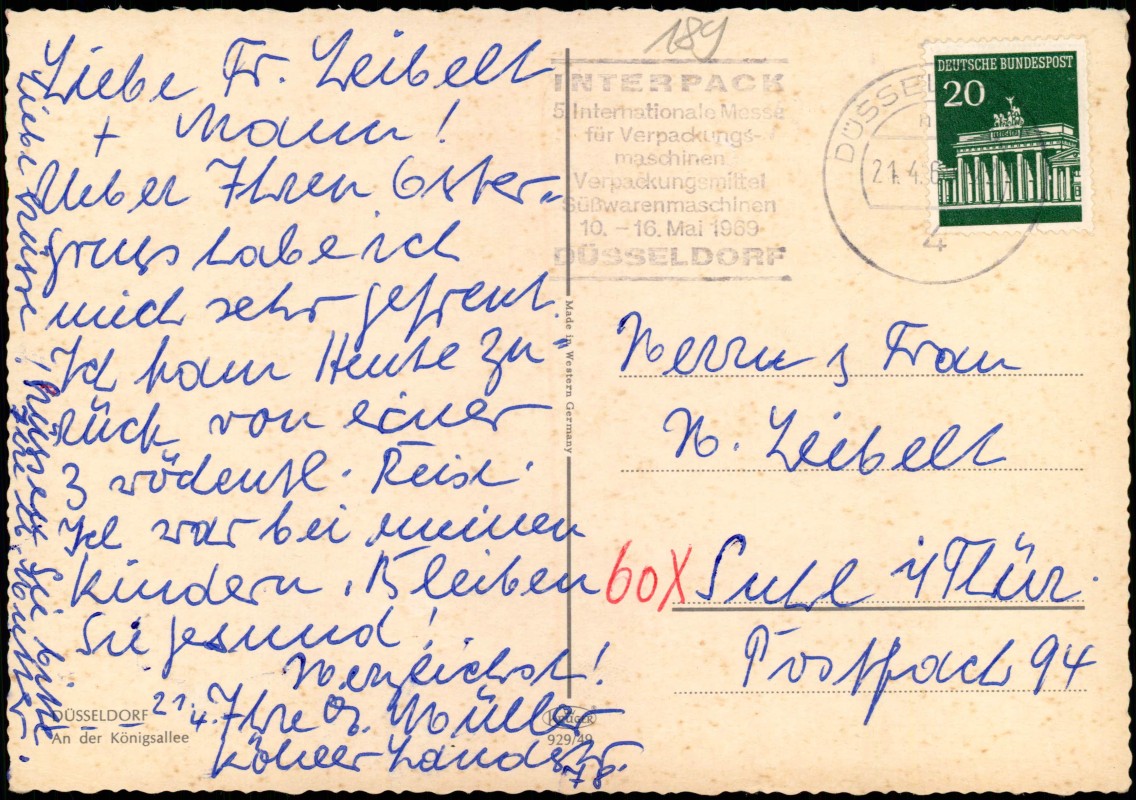 189
Liebe Fr. Leibelt
+ Mann!
Ueber Ihren Oster-
gruss habe ich
mich sehr gefreut.
Ich kam Heute zu-
rück von einer
3 wöchentl. Reise.
Ich war bei meinen
Kindern. Bleiben
Sie gesund!
Herzlichst!
21.4. Ihre Müller
Kölner Landstr.
78
Liebe Grüsse!
Grüssen Sie bitte
Ihre Mutter.
DÜSSELDORF
An der Königsallee
Made in Western Germany
KRÜGER
929/49
INTERPACK
5. Internationale Messe
für Verpackungs-
maschinen
Verpackungsmittel
Süßwarenmaschinen
10. – 16. Mai 1969
DÜSSELDORF
DÜSSEL
21.4.6
4
DEUTSCHE BUNDESPOST
20
Herrn & Frau
H. Leibelt
60X Suhl i/Thür.
Postfach 94